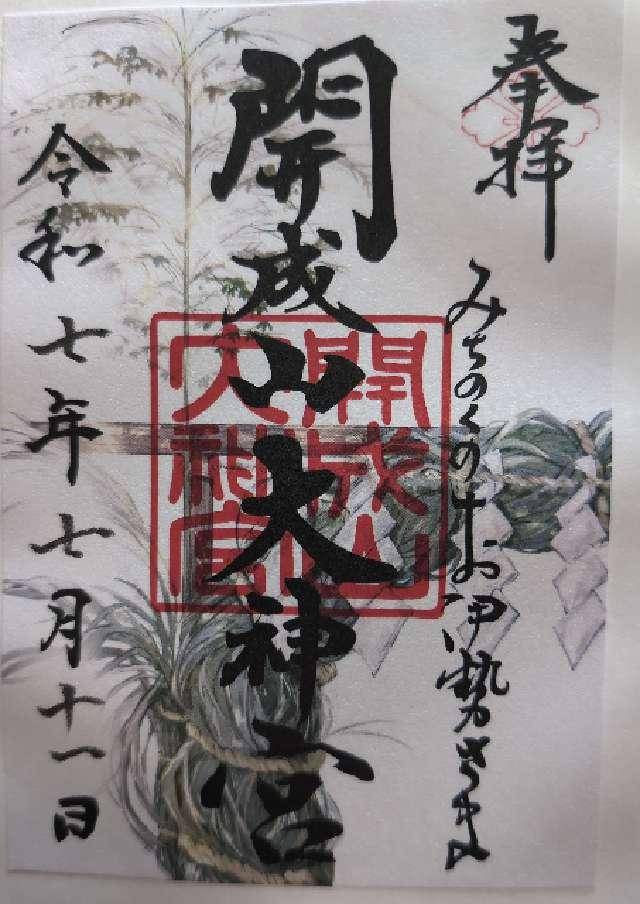 奉拝
みちのくのお伊勢さま
開成山大神宮
開成山
大神宮
令和七年七月十一日